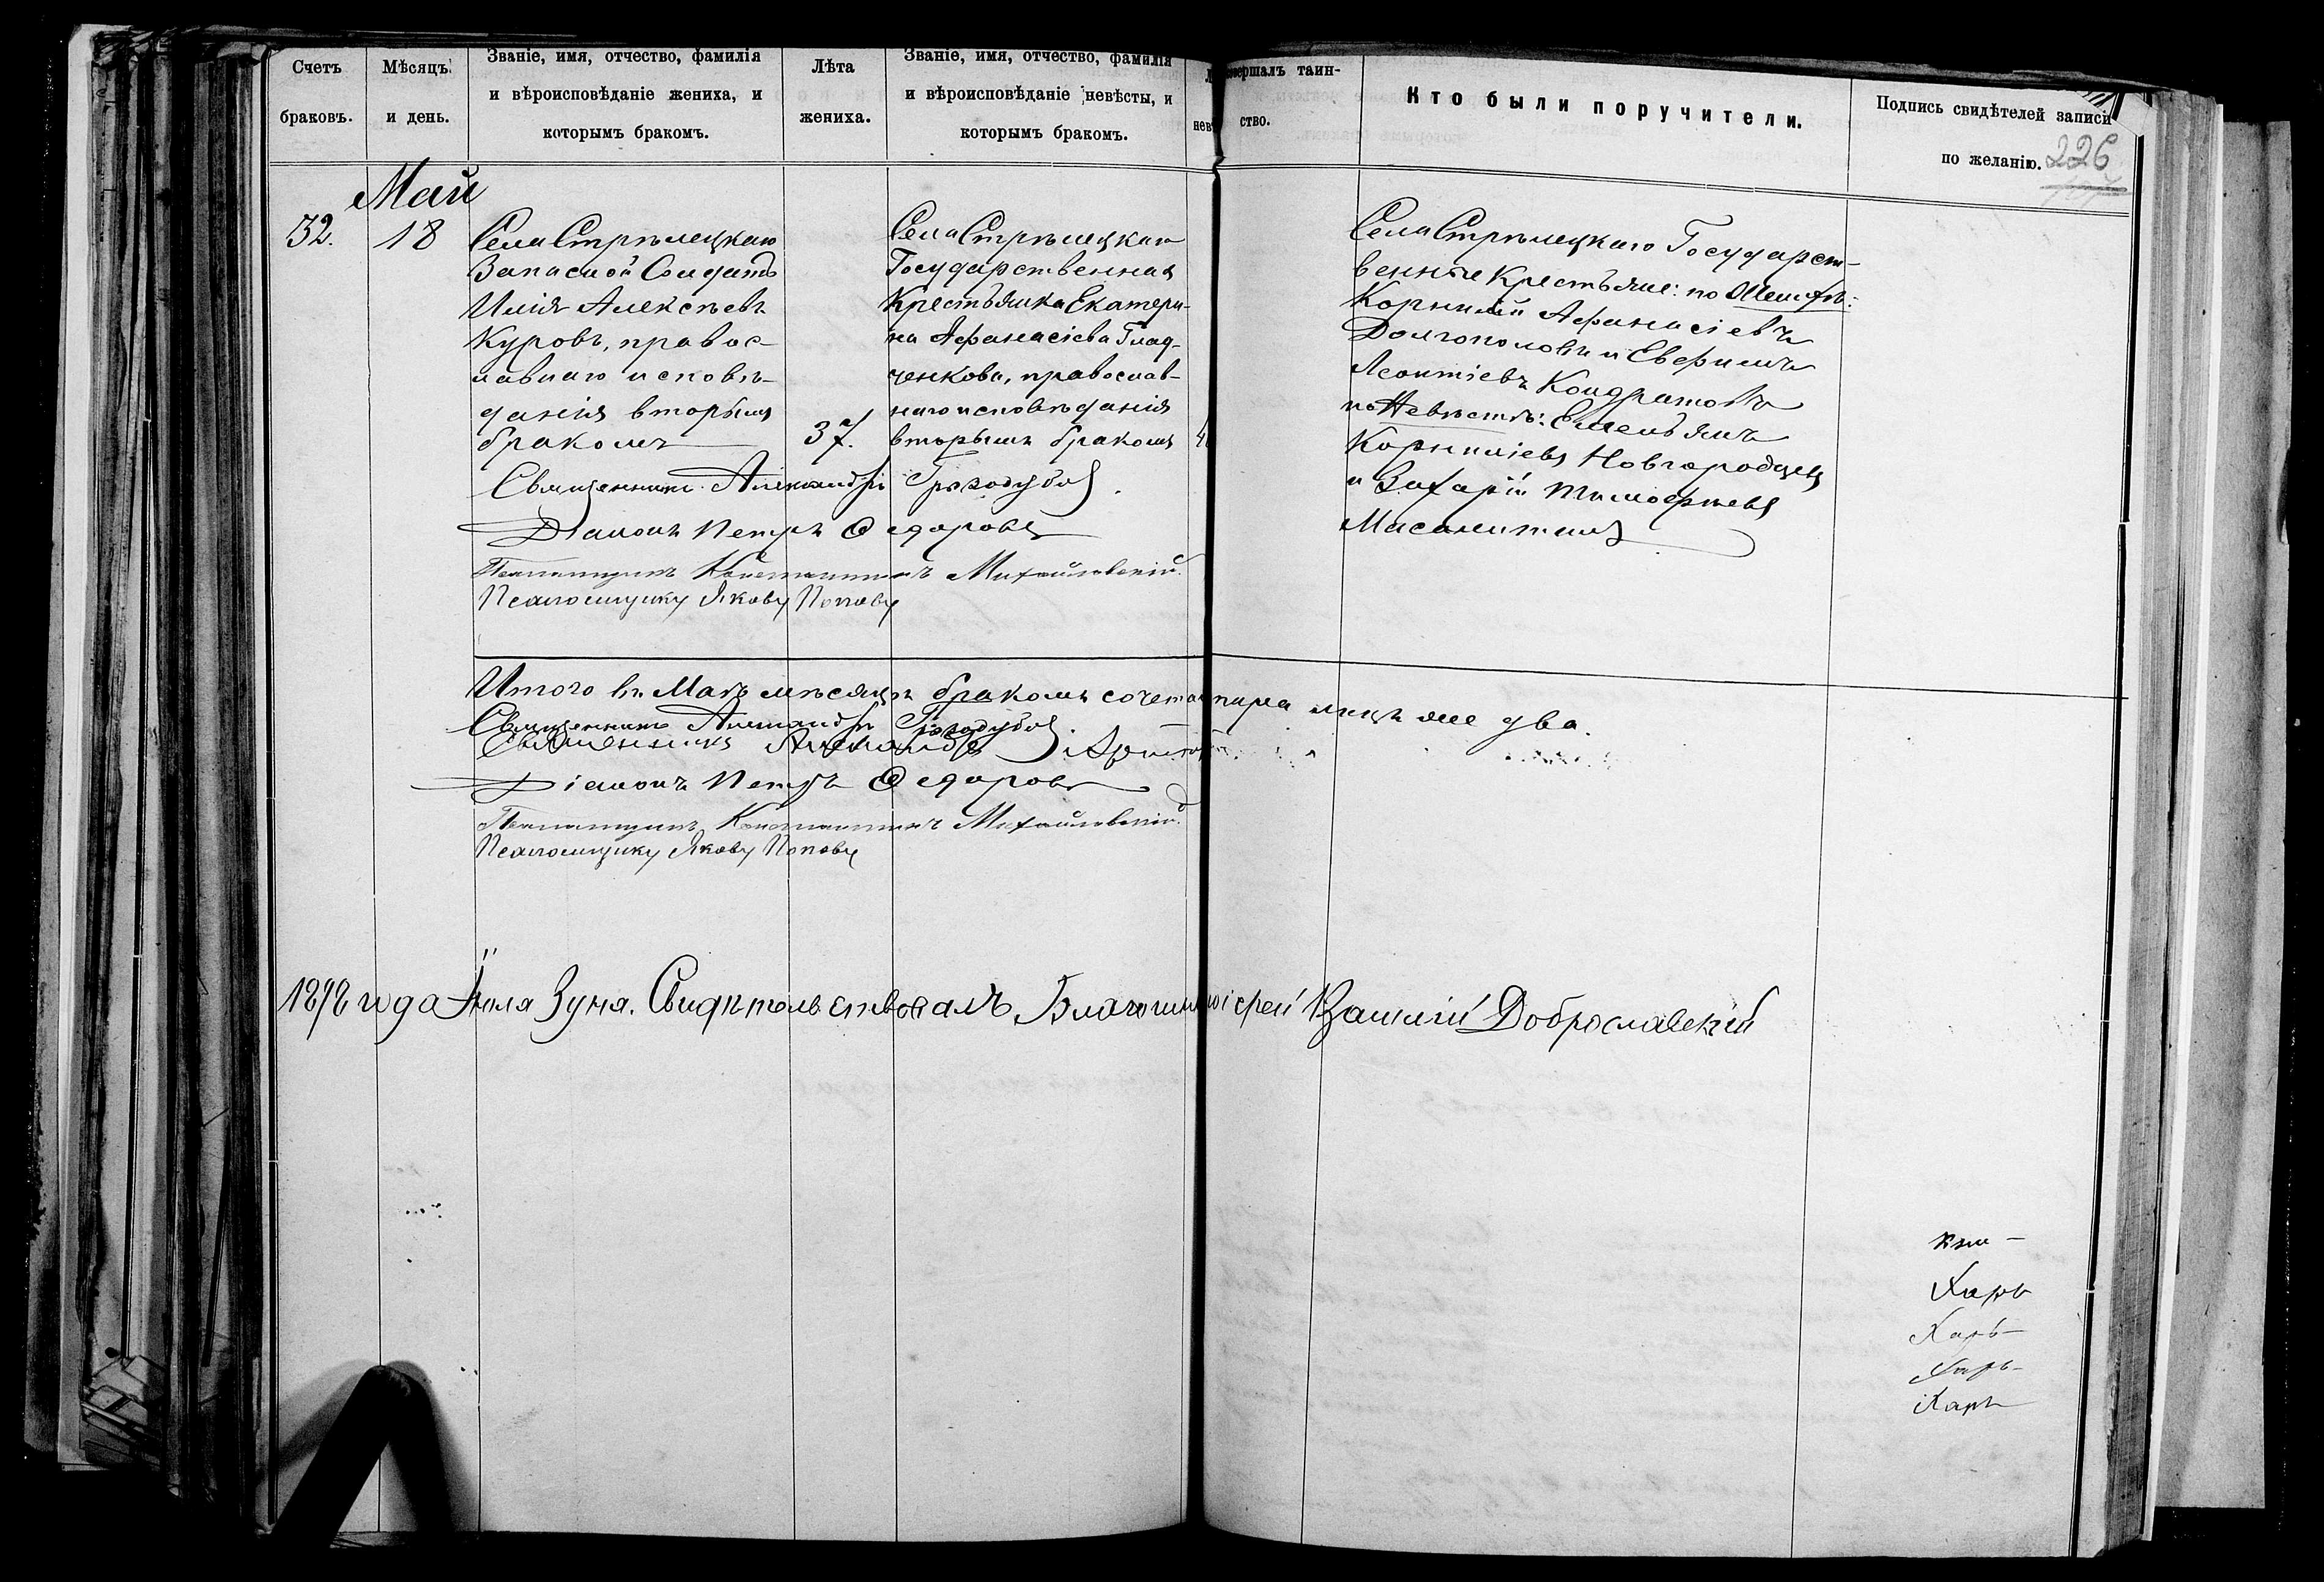 Счетъ
браковъ.
Мѣсяцъ
и день.
Званіе, имя, отчество, фамилія
и вѣроисповѣданіе жениха, и
которымъ бракомъ.
Лѣта
жениха.
Званіе, имя, отчество, фамилія
и вѣроисповѣданіе невѣсты, и
которымъ бракомъ.
таин-
ство.
Кто были поручители.
Подпись свидѣтелей записи
по желанію.
226
Май
32.
18
Села Стрѣлецкаго
Запасной Солдатъ
Илія Алексѣевъ
Куровъ, правос-
лавнаго исповѣ-
данія вторымъ
бракомъ
37.
Села Стрѣлецкаго
Государственная
Крестьянка Екатери-
на Афанасіева Глад-
ченкова, православ-
наго исповѣданія
вторымъ бракомъ
Села Стрѣлецкаго Государст-
венные Крестьяне: по Женихѣ:
Корнилій Афанасіевъ
Долгополовъ и Евфимъ
Леонтіевъ Кондратовъ
по Невѣстѣ: Емельянъ
Корниліевъ Новгородцевъ
и Захарій Тимофѣевъ
Масалитинъ
Священникъ Александръ
Діаконъ Петръ Ѳедоровъ
Псаломщикъ Константинъ Михайловскій.
Псаломщикъ Яковъ Поповъ
Итого въ Маѣ мѣсяцѣ бракомъ пара лицъ же два.
Священникъ Александръ
Священникъ Александръ
Діаконъ Петръ Ѳедоровъ
Псаломщикъ Константинъ Михайловскій
Псаломщикъ Яковъ Поповъ
года Іюля дня. Свидѣтельствовалъ іерей Василій Доброславскій
Харь
Харь
Харь
Харь